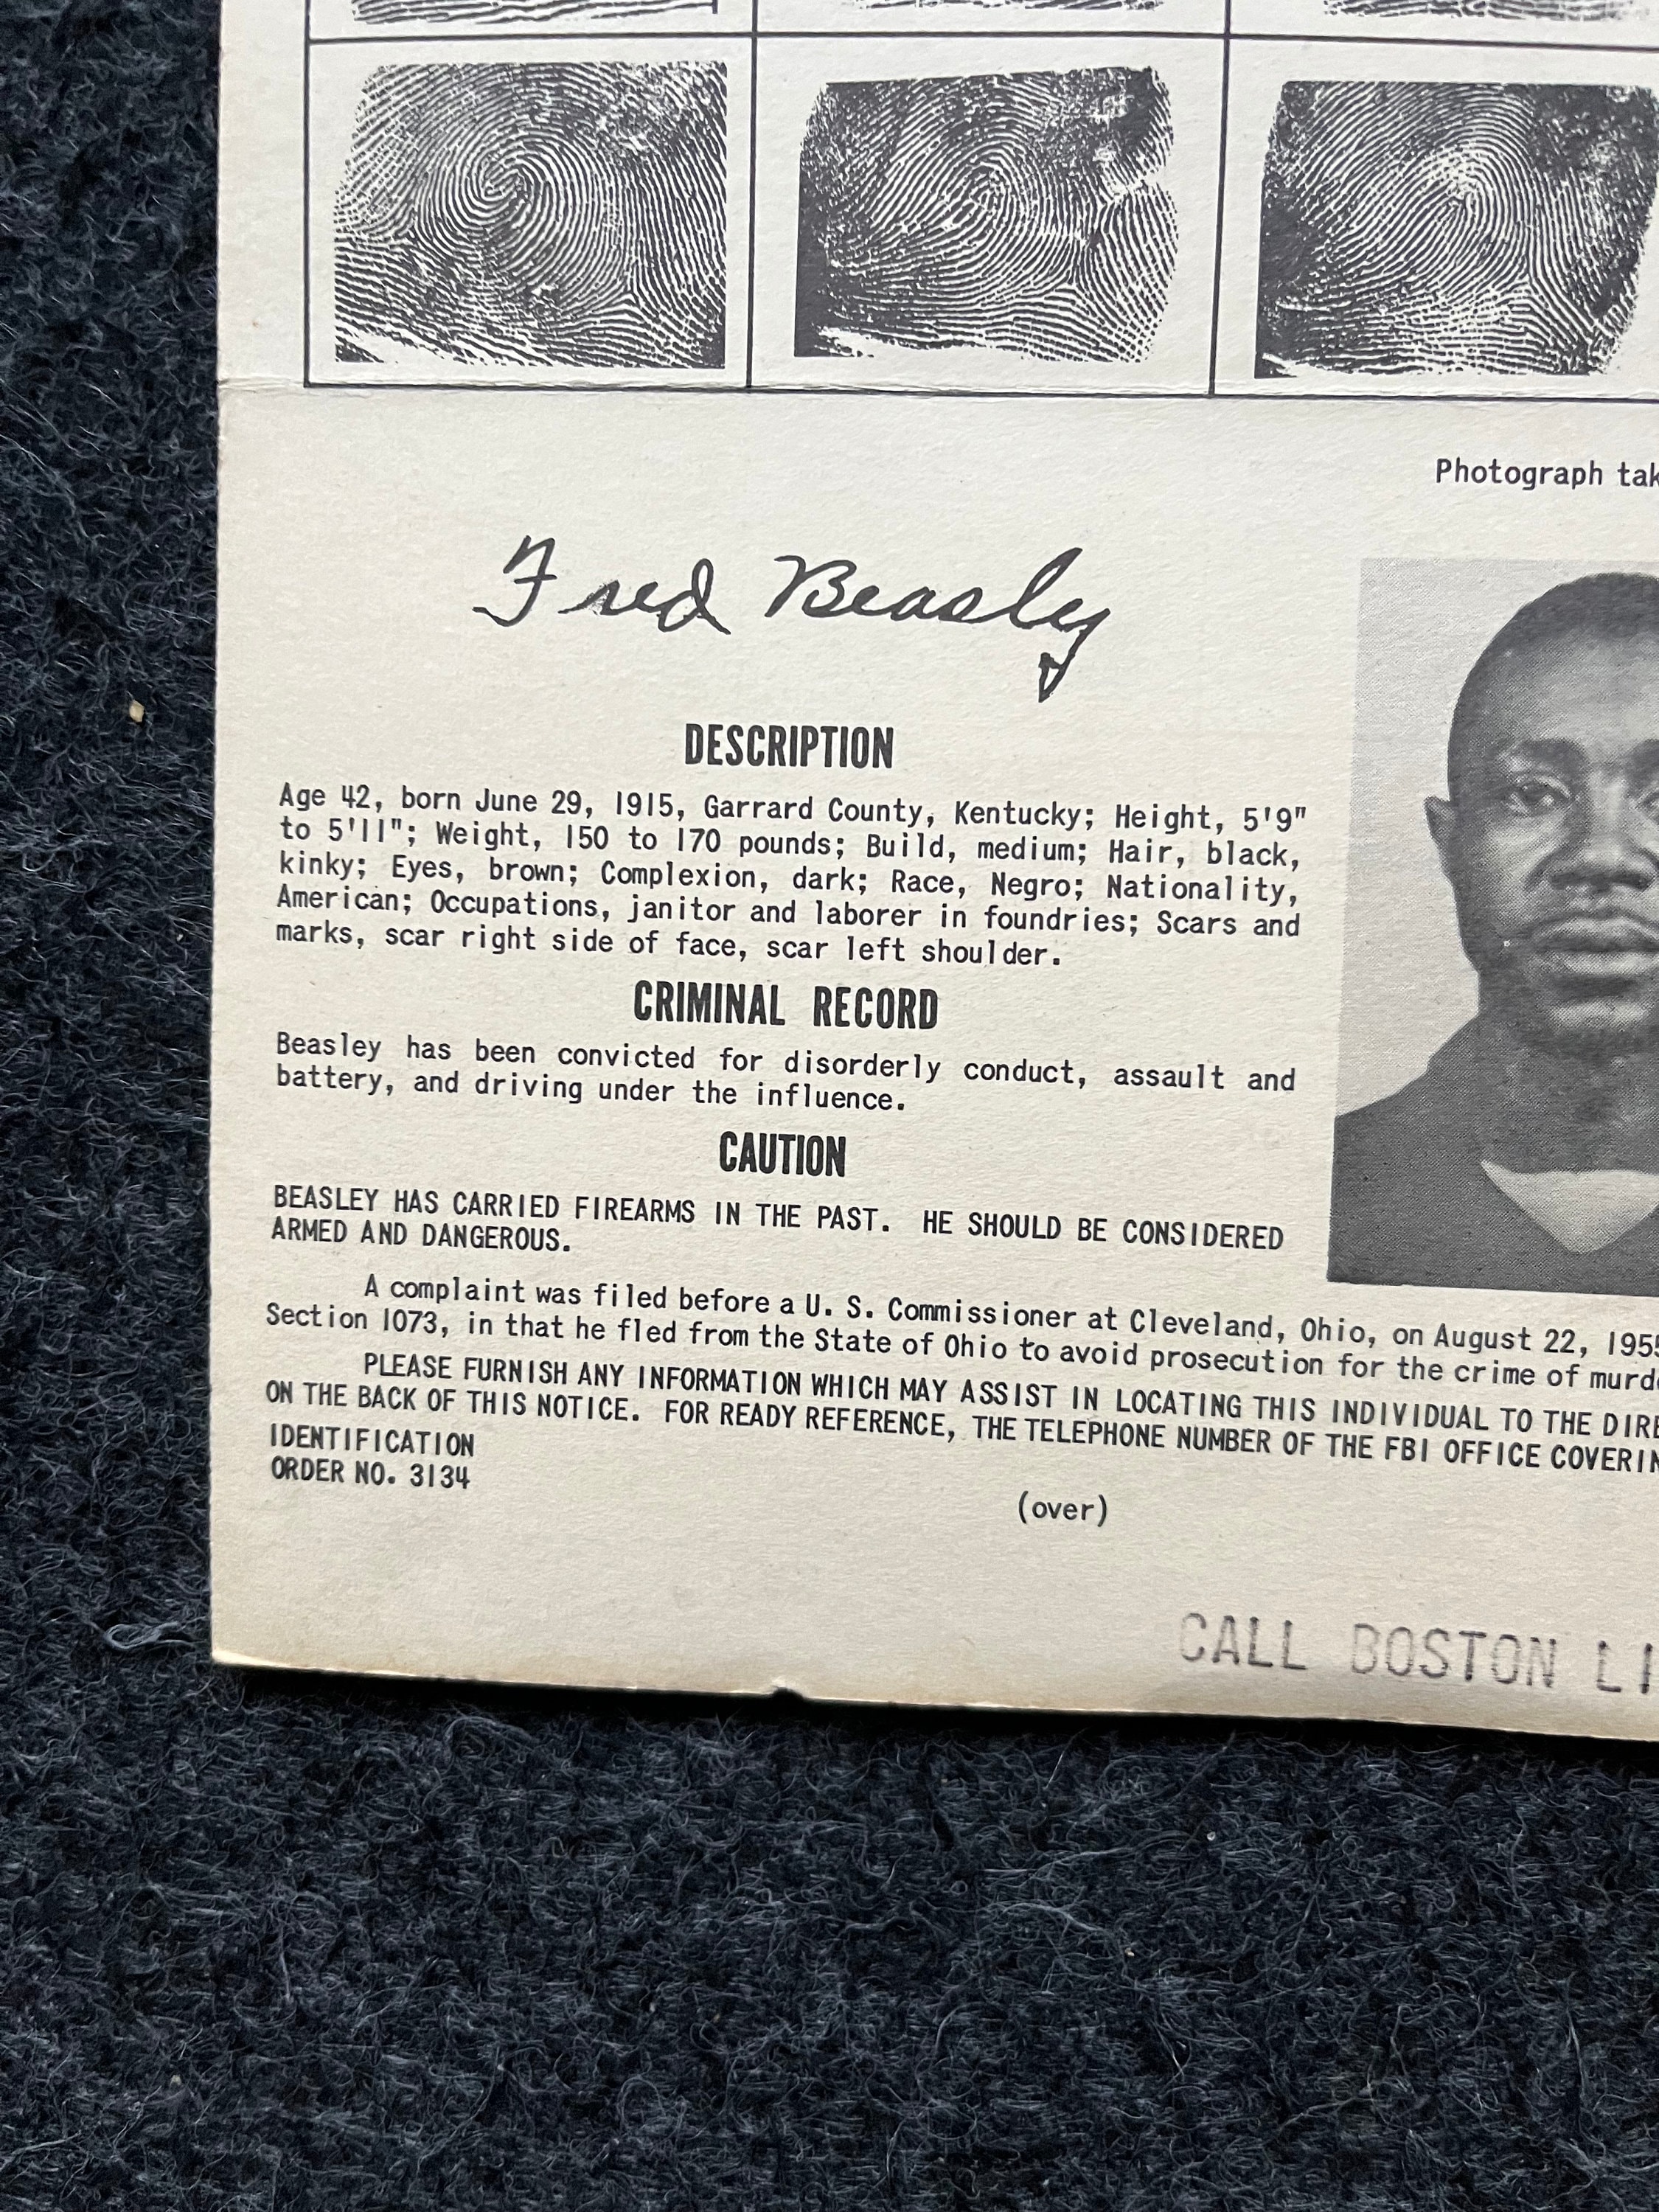 Photograph
Fred Beasley
DESCRIPTION
Age 42, born June 29, 1915, Garrard County, Kentucky; Height, 5'9"
to 5'11"; Weight, 150 to 170 pounds; Build, medium; Hair, black,
kinky; Eyes, brown; Complexion, dark; Race, Negro; Nationality,
American; Occupations, janitor and laborer in foundries; Scars and
marks, scar right side of face, scar left shoulder.
CRIMINAL RECORD
Beasley has been convicted for disorderly conduct, assault and
battery, and driving under the influence.
CAUTION
BEASLEY HAS CARRIED FIREARMS IN THE PAST. HE SHOULD BE CONSIDERED
ARMED AND DANGEROUS.
A complaint was filed before a U. S. Commissioner at Cleveland, Ohio, on August 22, 1955
Section 1073, in that he fled from the State of Ohio to avoid prosecution for the crime of
PLEASE FURNISH ANY INFORMATION WHICH MAY ASSIST IN LOCATING THIS INDIVIDUAL TO THE
ON THE BACK OF THIS NOTICE. FOR READY REFERENCE, THE TELEPHONE NUMBER OF THE FBI OFFICE
IDENTIFICATION
ORDER NO. 3134
(over)
CALL BOSTON